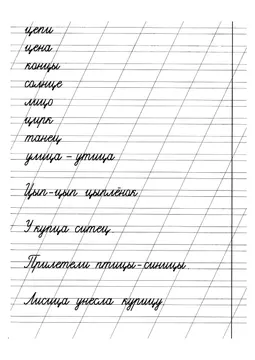 цепи
цена
концы
солнце
лицо
цирк
танец
улица - утица
Цып-цып цыплёнок
У купца ситец.
Прилетели птицы-синицы.
Лисица унесла курицу.